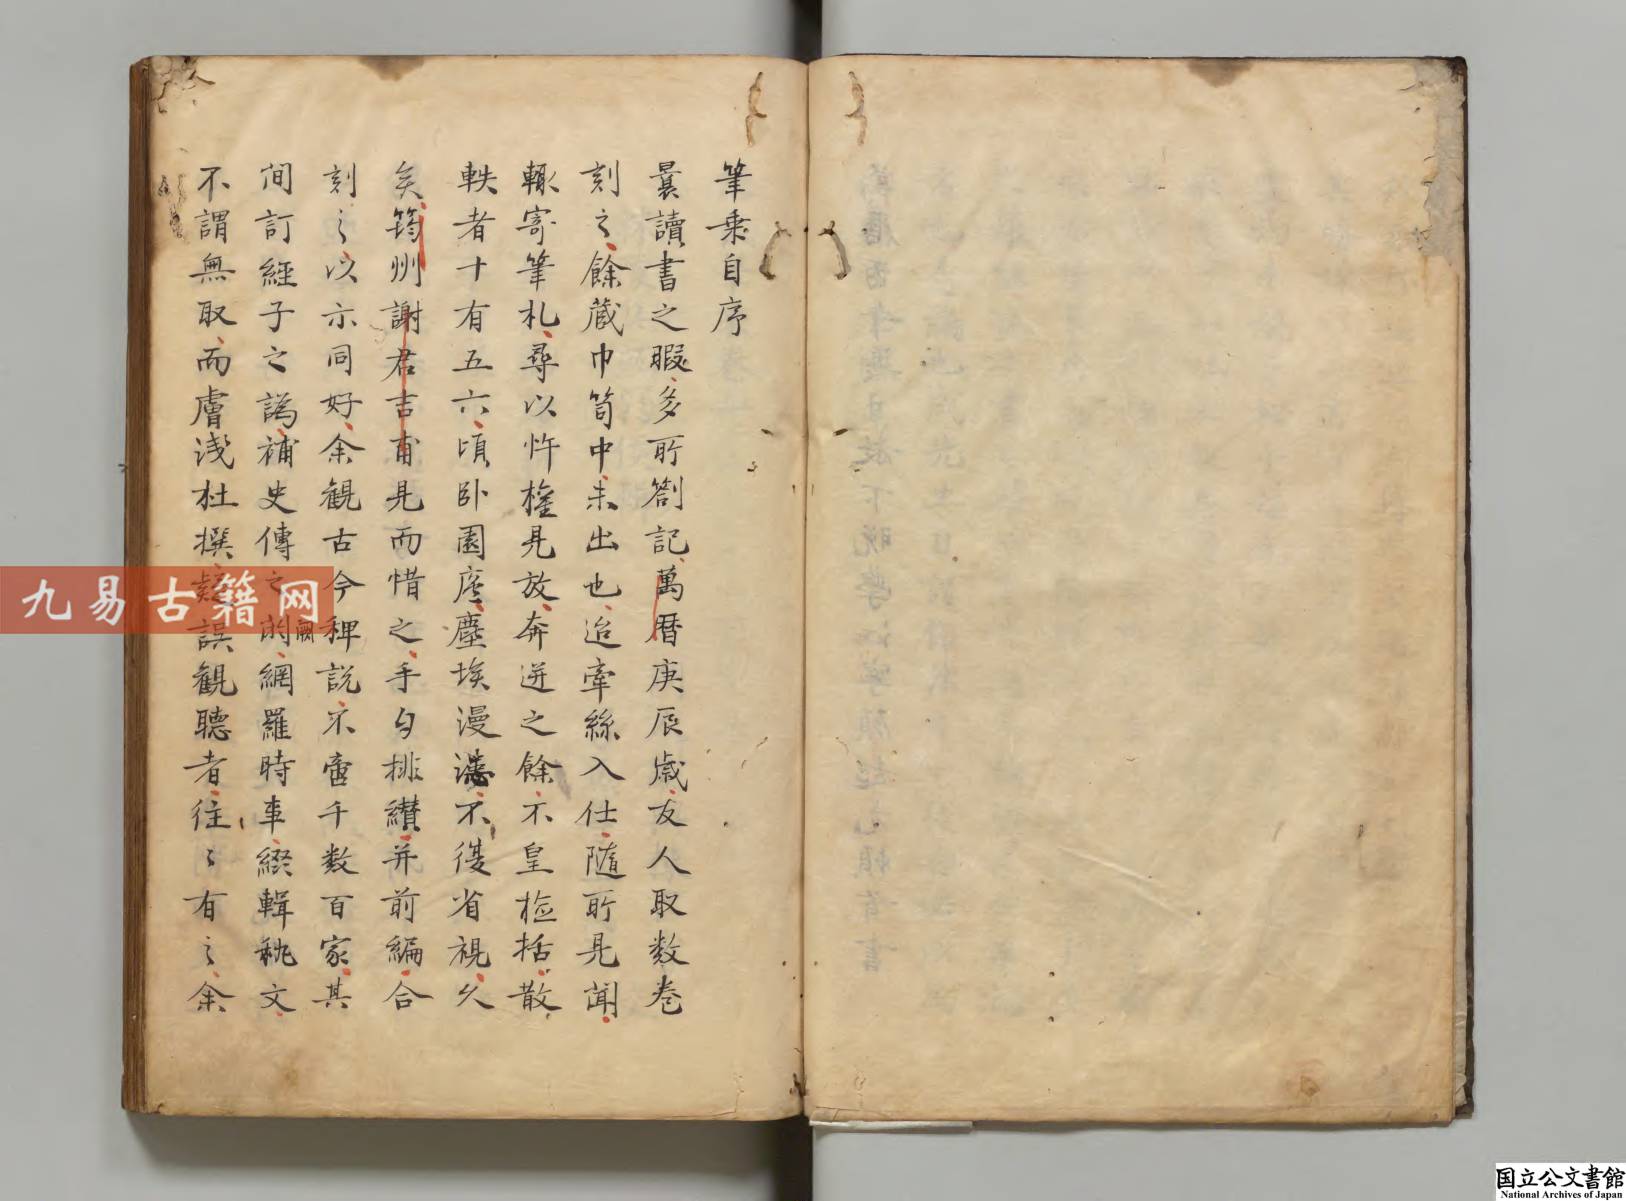 筆乗自序
曩讀書之暇多所劄記萬暦庚辰歳友人取数巻
刻之餘藏巾笥中未出也迨牽絲入仕随所見聞
輙寄筆札尋以忤權見放奔迸之餘不皇檢括散
軼者十有五六頃卧園廬塵埃漫漶不復省視久
矣筠州謝君吉甫見而惜之手自排纉并前編合
刻之以示同好余観古今稗説不啻千数百家其
間訂經子之譌補史傳之闕網羅時事綴輯秇文
不謂無取而膚浅杜撰疑誤観聴者往〻有之余
九易古籍网
国立公文書館
National Archives of Japan